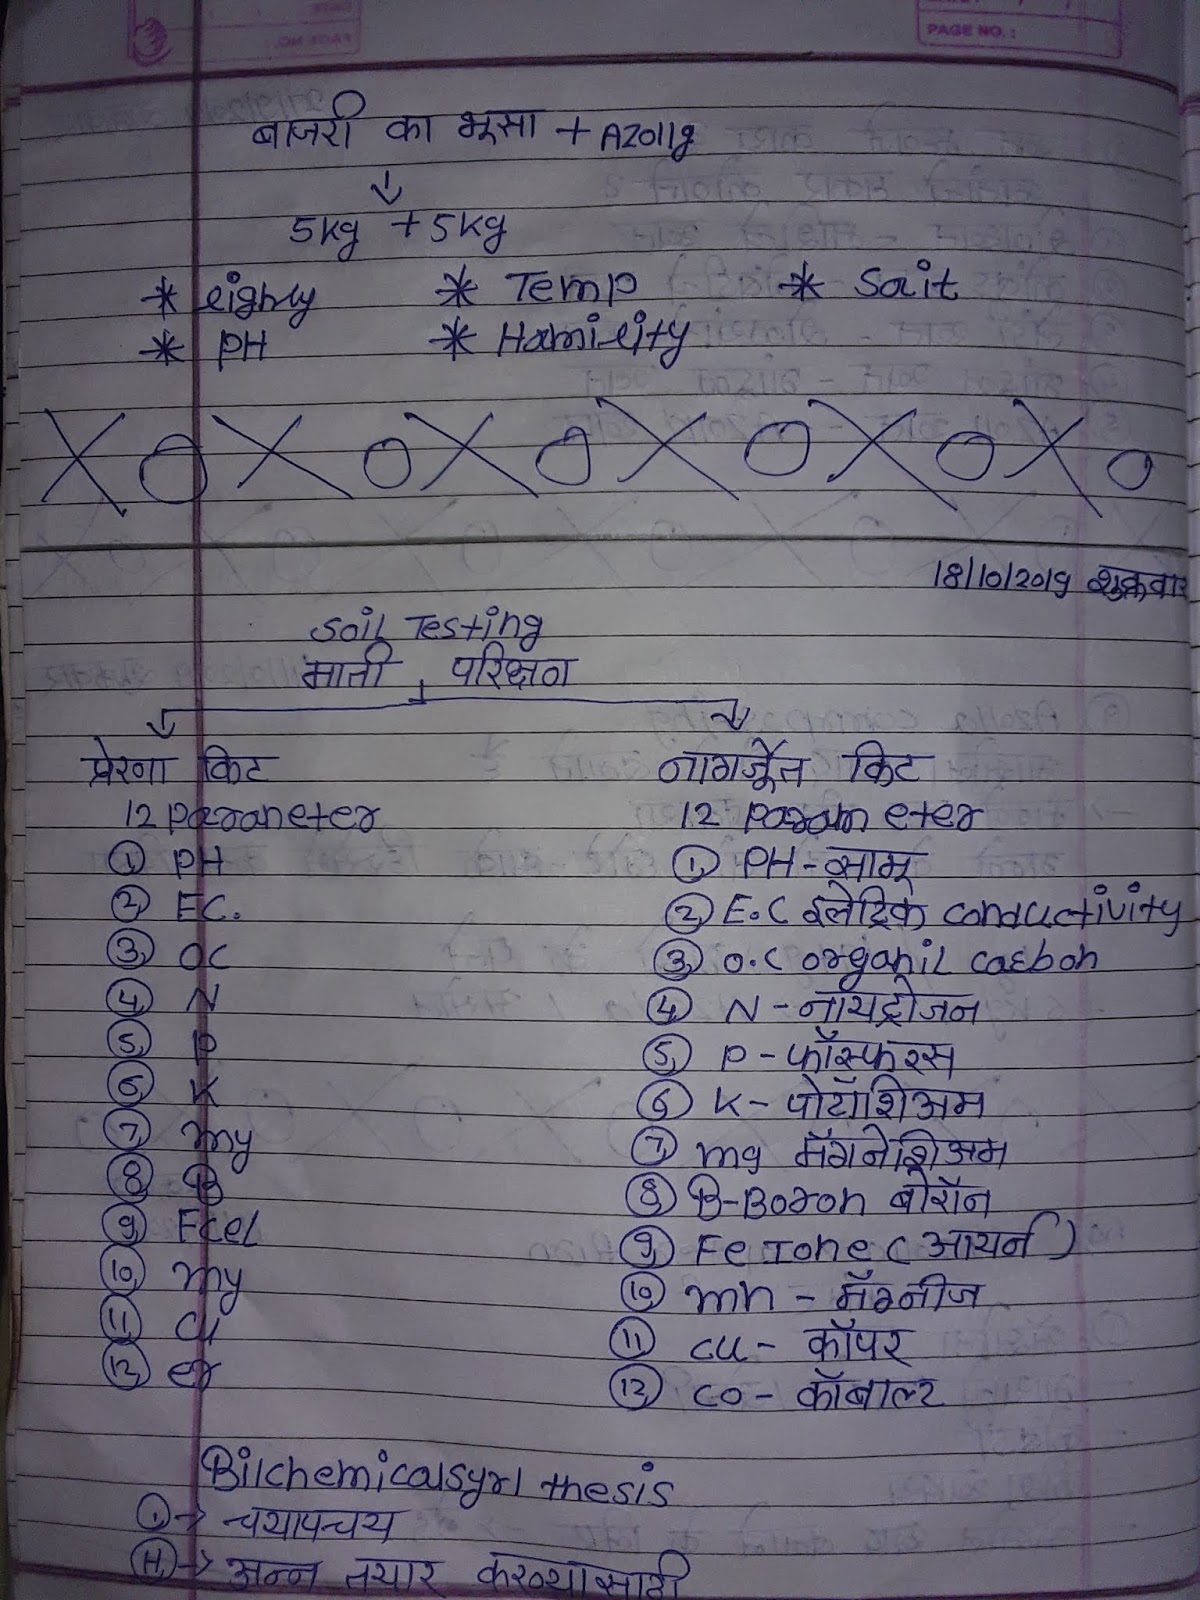 PAGE NO. :
बाजरी का भूसा + Azolla
↓
5kg + 5kg
* Temp * Sait
* PH * Hamility
18/10/2019 शुक्रवार
Soil Testing
माती परिक्षण
प्रेरणा किट नागर्जून किट
12 Parameter 12 Parameter
① PH ① PH - सामू
② EC. ② E.C इलेट्रिक conductivity
③ OC ③ O.C organil caebon
④ N ④ N - नायट्रोजन
⑤ P ⑤ P - फॉस्फरस
⑥ K ⑥ K - पोटॉशिअम
⑦ my ⑦ mg मॅगनेशिअम
⑧ B ⑧ B-Boron बोरॉन
⑨ ⑨ Fe Ione (आयर्न)
⑩ my ⑩ mn - मॅग्नीज
⑪ Cu ⑪ cu - कॉपर
⑫ ⑫ co - कॉबाल्ट
→ चयापचय
→ अन्न तयार करण्यासाठी